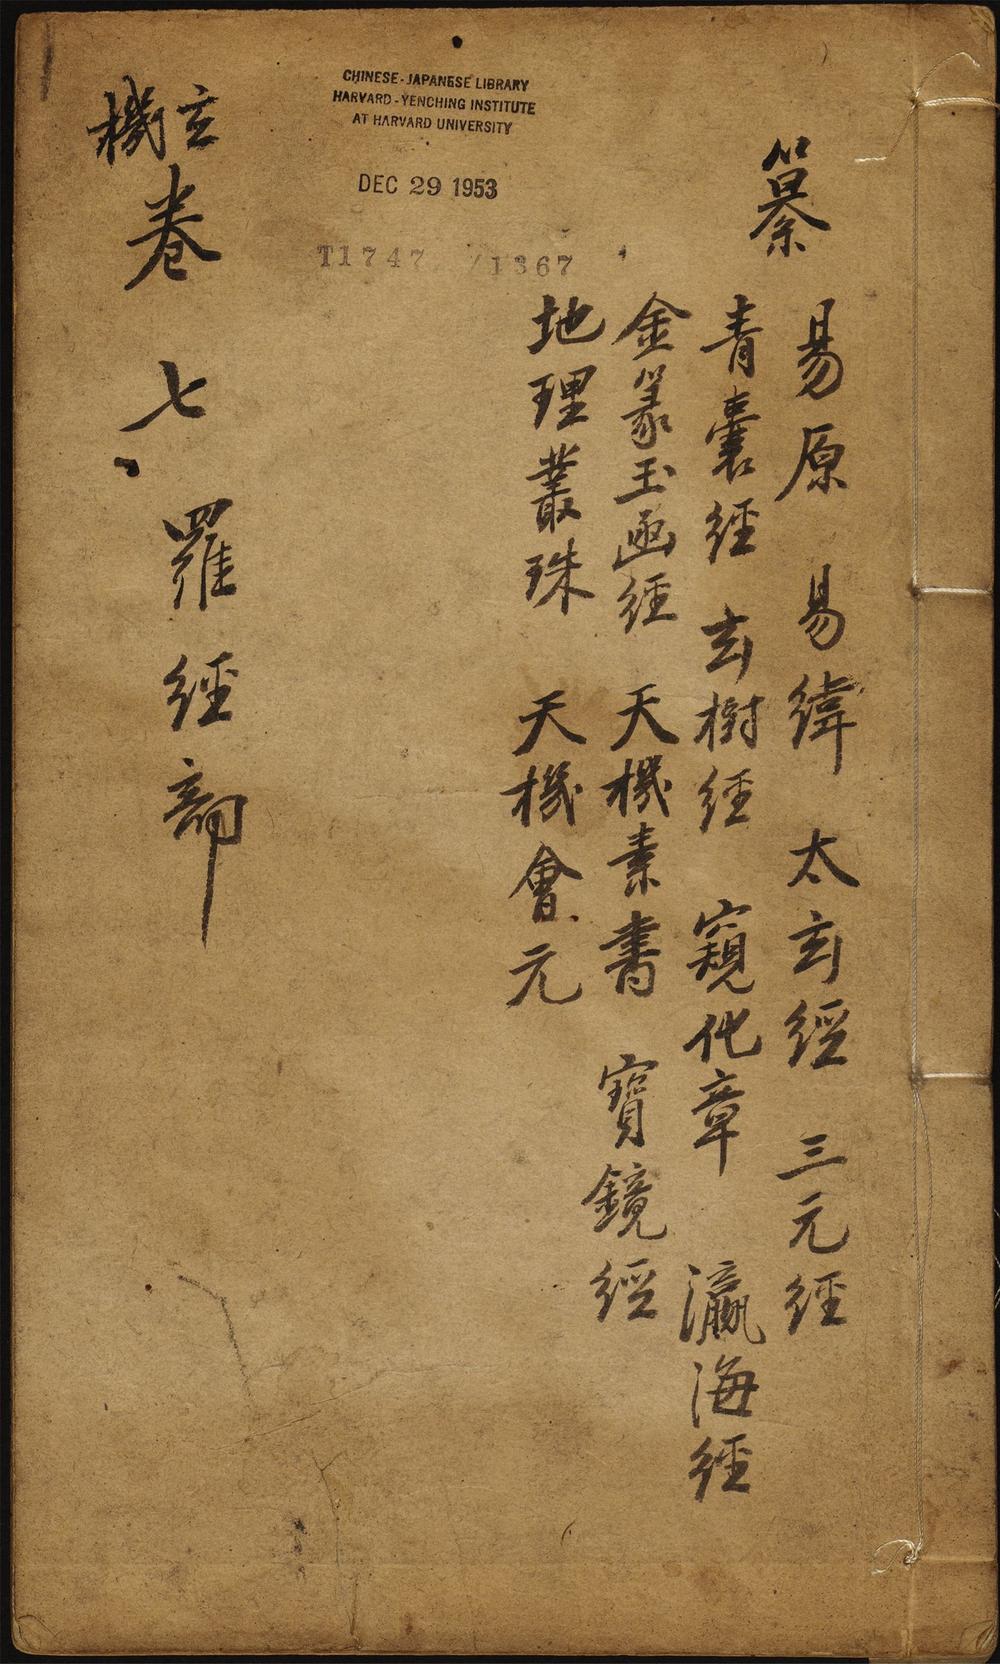 纂
易原 易緯 太玄經 三元經
青囊經 玄樹經 窺化章 瀛海經
金篆玉函經 天機素書 寶鏡經
地理叢珠 天機會元
CHINESE-JAPANESE LIBRARY
HARVARD-YENCHING INSTITUTE
AT HARVARD UNIVERSITY
DEC 29 1953
T1747 /1367
玄機
卷七 羅經部